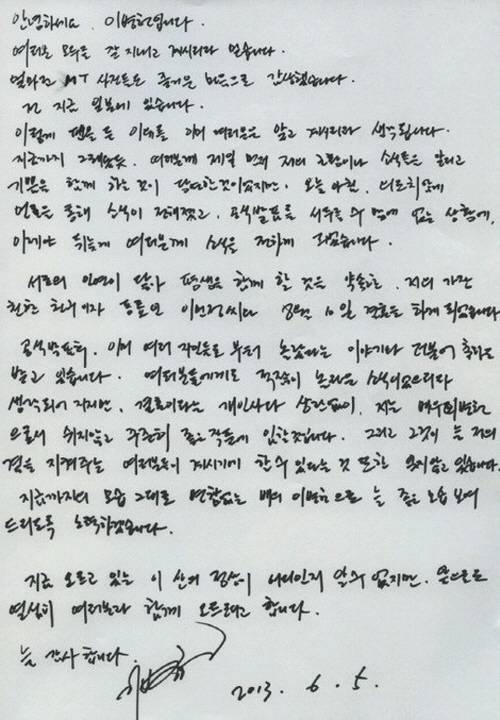 안녕하세요. 이병헌입니다.
여러분 모두들 잘 지내고 계시리라 믿습니다.
얼마전 MT 사진들도 즐거운 마음으로 감상했습니다.
전 지금 일본에 있습니다.
이렇게 펜을 든 이유를 이미 여러분은 알고 계시리라 생각됩니다.
지금까지 그래왔듯, 여러분께 제일 먼저 저의 근황이나 소식들을 알리고
기쁨을 함께 하는것이 당연한것이었지만, 오늘 아침, 의도치않게
언론을 통해 소식이 전해졌고, 공식발표를 서두를 수 밖에 없는 상황에,
이제야 뒤늦게 여러분께 소식을 전하게 되었습니다.
서로의 인연이 닿아 평생을 함께 할 것을 약속한, 저의 가장
친한 친구이자 동료인 이민정씨와 8월 10일 결혼을 하게 되었습니다
공식발표후, 이미 여러 지인들로 부터 놀랐다는 이야기와 더불어 축하도
받고 있습니다. 여러분들에게도 적잖이 놀라운 소식이었으리라
생각되어 지지만, 결혼이라는 개인사와 상관없이, 저는 배우이병헌
으로서 쉬지않고 꾸준히 좋은 작품에 임할것입니다. 그리고 그것이 늘 저의
곁을 지켜주는 여러분들이 계시기에 할 수 있다는 것 또한 잊지않고 있습니다.
지금까지의 모습 그대로 변함없는 배우 이병헌으로 늘 좋은 모습 보여
드리도록 노력하겠습니다.
지금 오르고 있는 이 산의 정상이 어디인지 알 수 없지만, 앞으로도
열심히 여러분과 함께 오르려고 합니다.
늘 감사합니다.
2013. 6. 5.